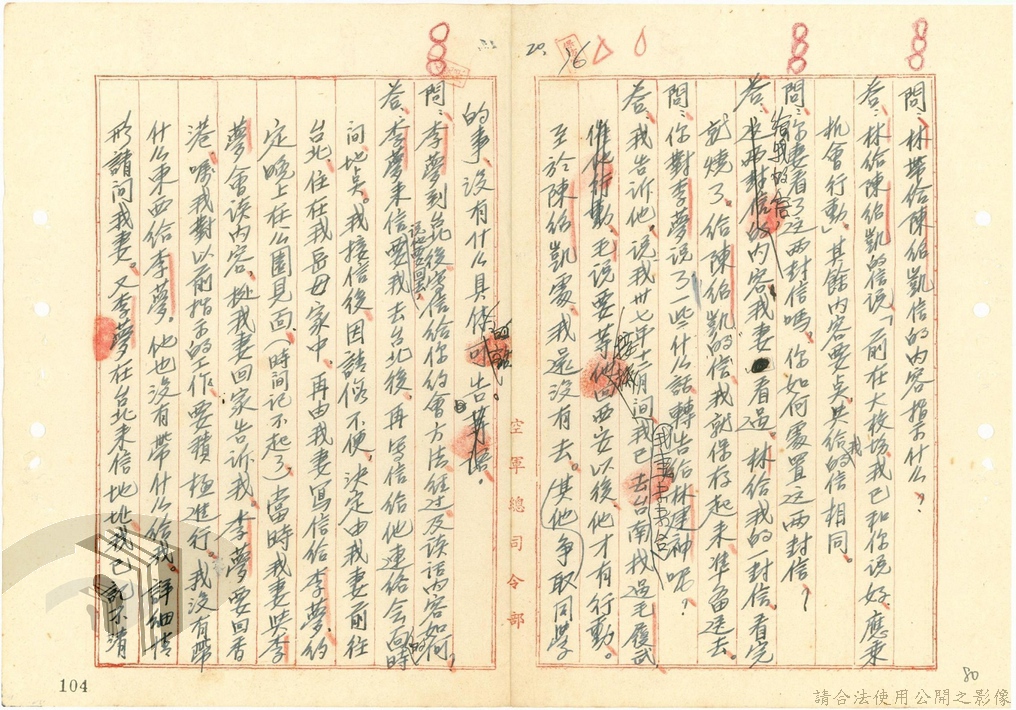 問：林帶給陳紹凱信的內容指示什么？
答：林給陳紹凱的信說「前在大校場我已和你說好、應乘
机會行動」其餘內容要点與給我的信相同。
問：你妻看了這兩封信嗎，你如何處置這兩封信？
給我的信
答：這兩封信的內容我妻看過、林給我的一封信看完
就燒了、給陳紹凱的信我就保存起來準备送去。
問：你對李夢說了一些什么話轉告給林建神呢？
答：我告訴他、說我卅七年十二月間我已去台南找過毛履武
接
催他行動、毛說要等他回西安以後他才有行動。
至於陳紹凱處我還沒有去。（其他爭取同學
的事沒有什么具体
問：李夢到台北後寫信給你約會方法経过及谈话內容如何？
答：李夢来信要我去台北後、再写信給他連絡会面的時
间地点。我接信後因請假不便、決定由我妻前往
台北、住在我岳母家中、再由我妻寫信給李夢、約
定晚上在公園見面（時间记不起了）當時我妻與李
夢會谈內容、据我妻回家告訴我、李夢要回香
港、囑我對以前指示的工作、要積極進行。我沒有帶
什么東西給李夢，他也沒有帶什么給我。詳細情
形請问我妻。又李夢在台北来信地址我已記不清
空軍總司令部
20.
16
104
80
請合法使用公開之影像